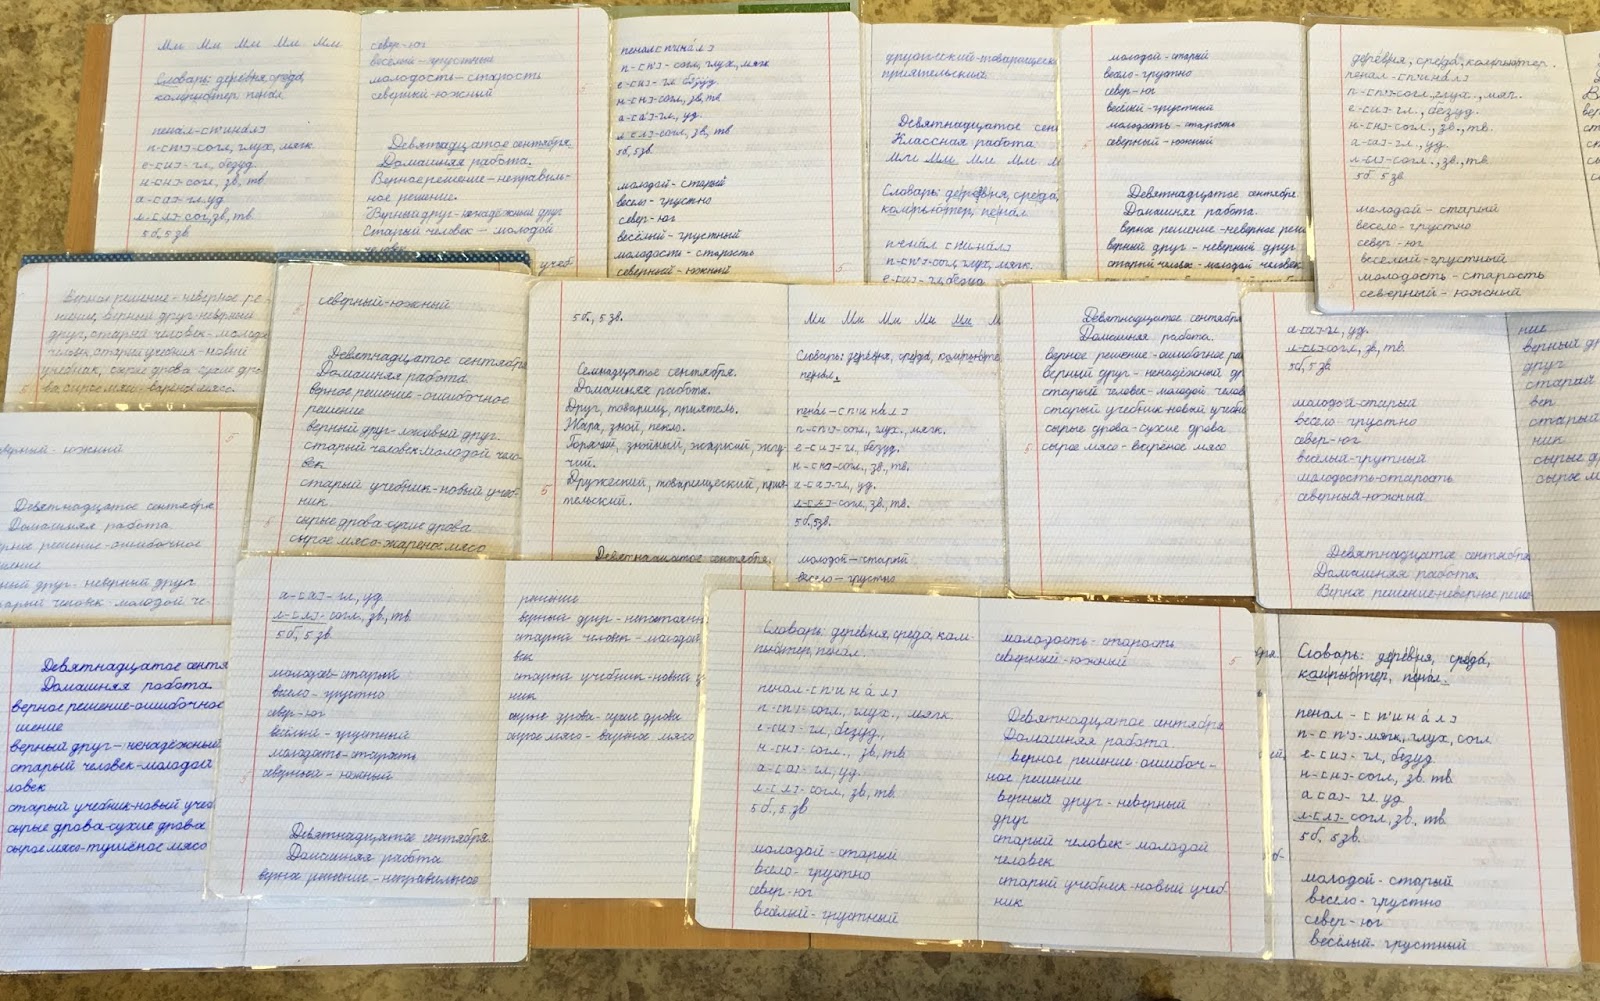 Мм Мм Мм Мм Мм
Словарь: деревня, среда,
компьютер, пенал
пенал-[п'инал]
п-[п']-согл, глух, мягк.
е-[и]- гл, безуд.
н-[н]-согл, зв, тв.
а-[а]-гл. уд.
л-[л]-сог, зв, тв.
5 б, 5 зв.
север-юг
весёлый-грустный
молодость-старость
северный-южный
Девятнадцатое сентября.
Домашняя работа.
Верное решение-неправиль-
ное решение.
Верный друг-ненадёжный друг
Старый человек-молодой
человек
пенал[п'инал]
п-[п']-согл, глух, мягк
е-[и]-гл. безуд.
н-[н]-согл, зв, тв
а-[а]-гл., уд.
л-[л]-согл, зв, тв
5б, 5зв.
молодой-старый
весело-грустно
север-юг
весёлый-грустный
молодость-старость
северный-южный
приятельский.
Девятнадцатое сен
Классная работа
Мм Мм Мм Мм М
Словарь: деревня, среда,
компьютер, пенал
пенал[п'инал]
п-[п']-согл, глух, мягк.
е-[и]-гл, безуд
молодой-старый
весело-грустно
север-юг
весёлый-грустный
молодость-старость
северный-южный
Девятнадцатое сентября.
Домашняя работа.
Верное решение-неверное реш
верный друг-неверный друг
старый человек-молодой человек
деревня, среда, компьютер.
пенал-[п'инал]
п-[п']-согл, глух., мяг.
е-[и]-гл., безуд.
н-[н]-согл., зв., тв.
а-[а]-гл., уд.
л-[л]-согл., зв., тв
5б. 5 зв
молодой-старый
весело-грустно
север-юг
веселый-грустный
молодость-старость
северный-южный
Верное решение-неверное ре-
шение, верный друг-неверный
друг, старый человек-молодой
человек, старый учебник-новый
учебник, сырые дрова-сухие дро-
ва, сырое мясо-вареное мясо.
северный-южный
Девятнадцатое сентября
Домашняя работа.
верное решение-ошибочное
решение
верный друг-лживый друг.
старый человек-молодой чело-
век
старый учебник-новый учеб-
ник.
сырые дрова-сухие дрова
сырое мясо-жареное мясо
5 б., 5 зв.
Семнадцатое сентября.
Домашняя работа.
Друг, товарищ, приятель.
Жара, зной, пекло.
Горячий, знойный, жаркий, жгу-
чий.
Дружеский, товарищеский, прия-
тельский.
Девятнадцатое сентября.
Мм Мм Мм Мм Мм М
Словарь: деревня, среда, компьюте
пенал.
пенал-[п'инал]
п-[п']-согл., глух., мягк.
е-[и]-гл., безуд.
н-[н]-согл., зв., тв.
а-[а]-гл., уд.
л-[л]-согл., зв., тв.
5б., 5зв.
молодой-старый
весело-грустно
Девятнадцатое сентября
Домашняя работа.
верное решение-ошибочное ре
верный друг-ненадёжный др
старый человек-молодой челов
старый учебник-новый учебн
сырые дрова-сухие дрова
сырое мясо-варёное мясо
а-[а]-гл, уд.
л-[л]-согл, зв, тв.
5б, 5 зв
молодой-старый
весело-грустно
север-юг
весёлый-грутный
молодость-старость
северный-южный.
Девятнадцатое сентября
Домашняя работа
Верное решение-неверное реше
верный др
друг
старый
век
старый
ник
сырые д
сырое м
южный
Девятнадцатое сентября
Домашняя работа
рное решение-ошибочное
шение
ный друг-неверный друг
арый человек молодой че-
Девятнадцатое сентя
Домашняя работа
верное решение-ошибочное
шение
верный друг-ненадёжный
старый человек-молодой
ловек
старый учебник-новый учеб
сырые дрова-сухие дрова
сырое мясо-тушёное мясо
а-[а]-гл, уд
л-[л]-согл, зв, тв
5б, 5зв.
молодой-старый
весело-грустно
север-юг
весёлый-грустный
молодость-старость
северный-южный
Девятнадцатое сентября.
Домашняя работа
верное решение-неправильное
решение
верный друг-непостоянн
старый человек-молодой
век
старый учебник-новый у
ник
сырые дрова-сухие дрова
сырое мясо-вареное мясо
Словарь: деревня, среда, ком-
пьютер, пенал.
пенал-[п'инал]
п-[п']-согл., глух., мягк.
е-[и]-гл, безуд.,
н-[н]-согл., зв, тв
а-[а]-гл, уд
л-[л]-согл, зв, тв.
5б, 5 зв
молодой-старый
весело-грустно
север-юг
весёлый-грустный
молодость-старость
северный-южный
Девятнадцатое сентября
Домашняя работа.
Верное решение-ошибоч-
ное решение
верный друг-неверный
друг
старый человек-молодой
человек
старый учебник-новый учеб-
ник
Словарь: деревня, среда,
компьютер, пенал.
пенал-[п'инал]
п-[п']-мягк, глух, согл
е-[и]-гл, безуд
н-[н]-согл, зв. тв
а[а]-гл. уд
л-[л]-согл, зв. тв.
5б, 5зв.
молодой-старый
весело-грустно
север-юг
весёлый грустный